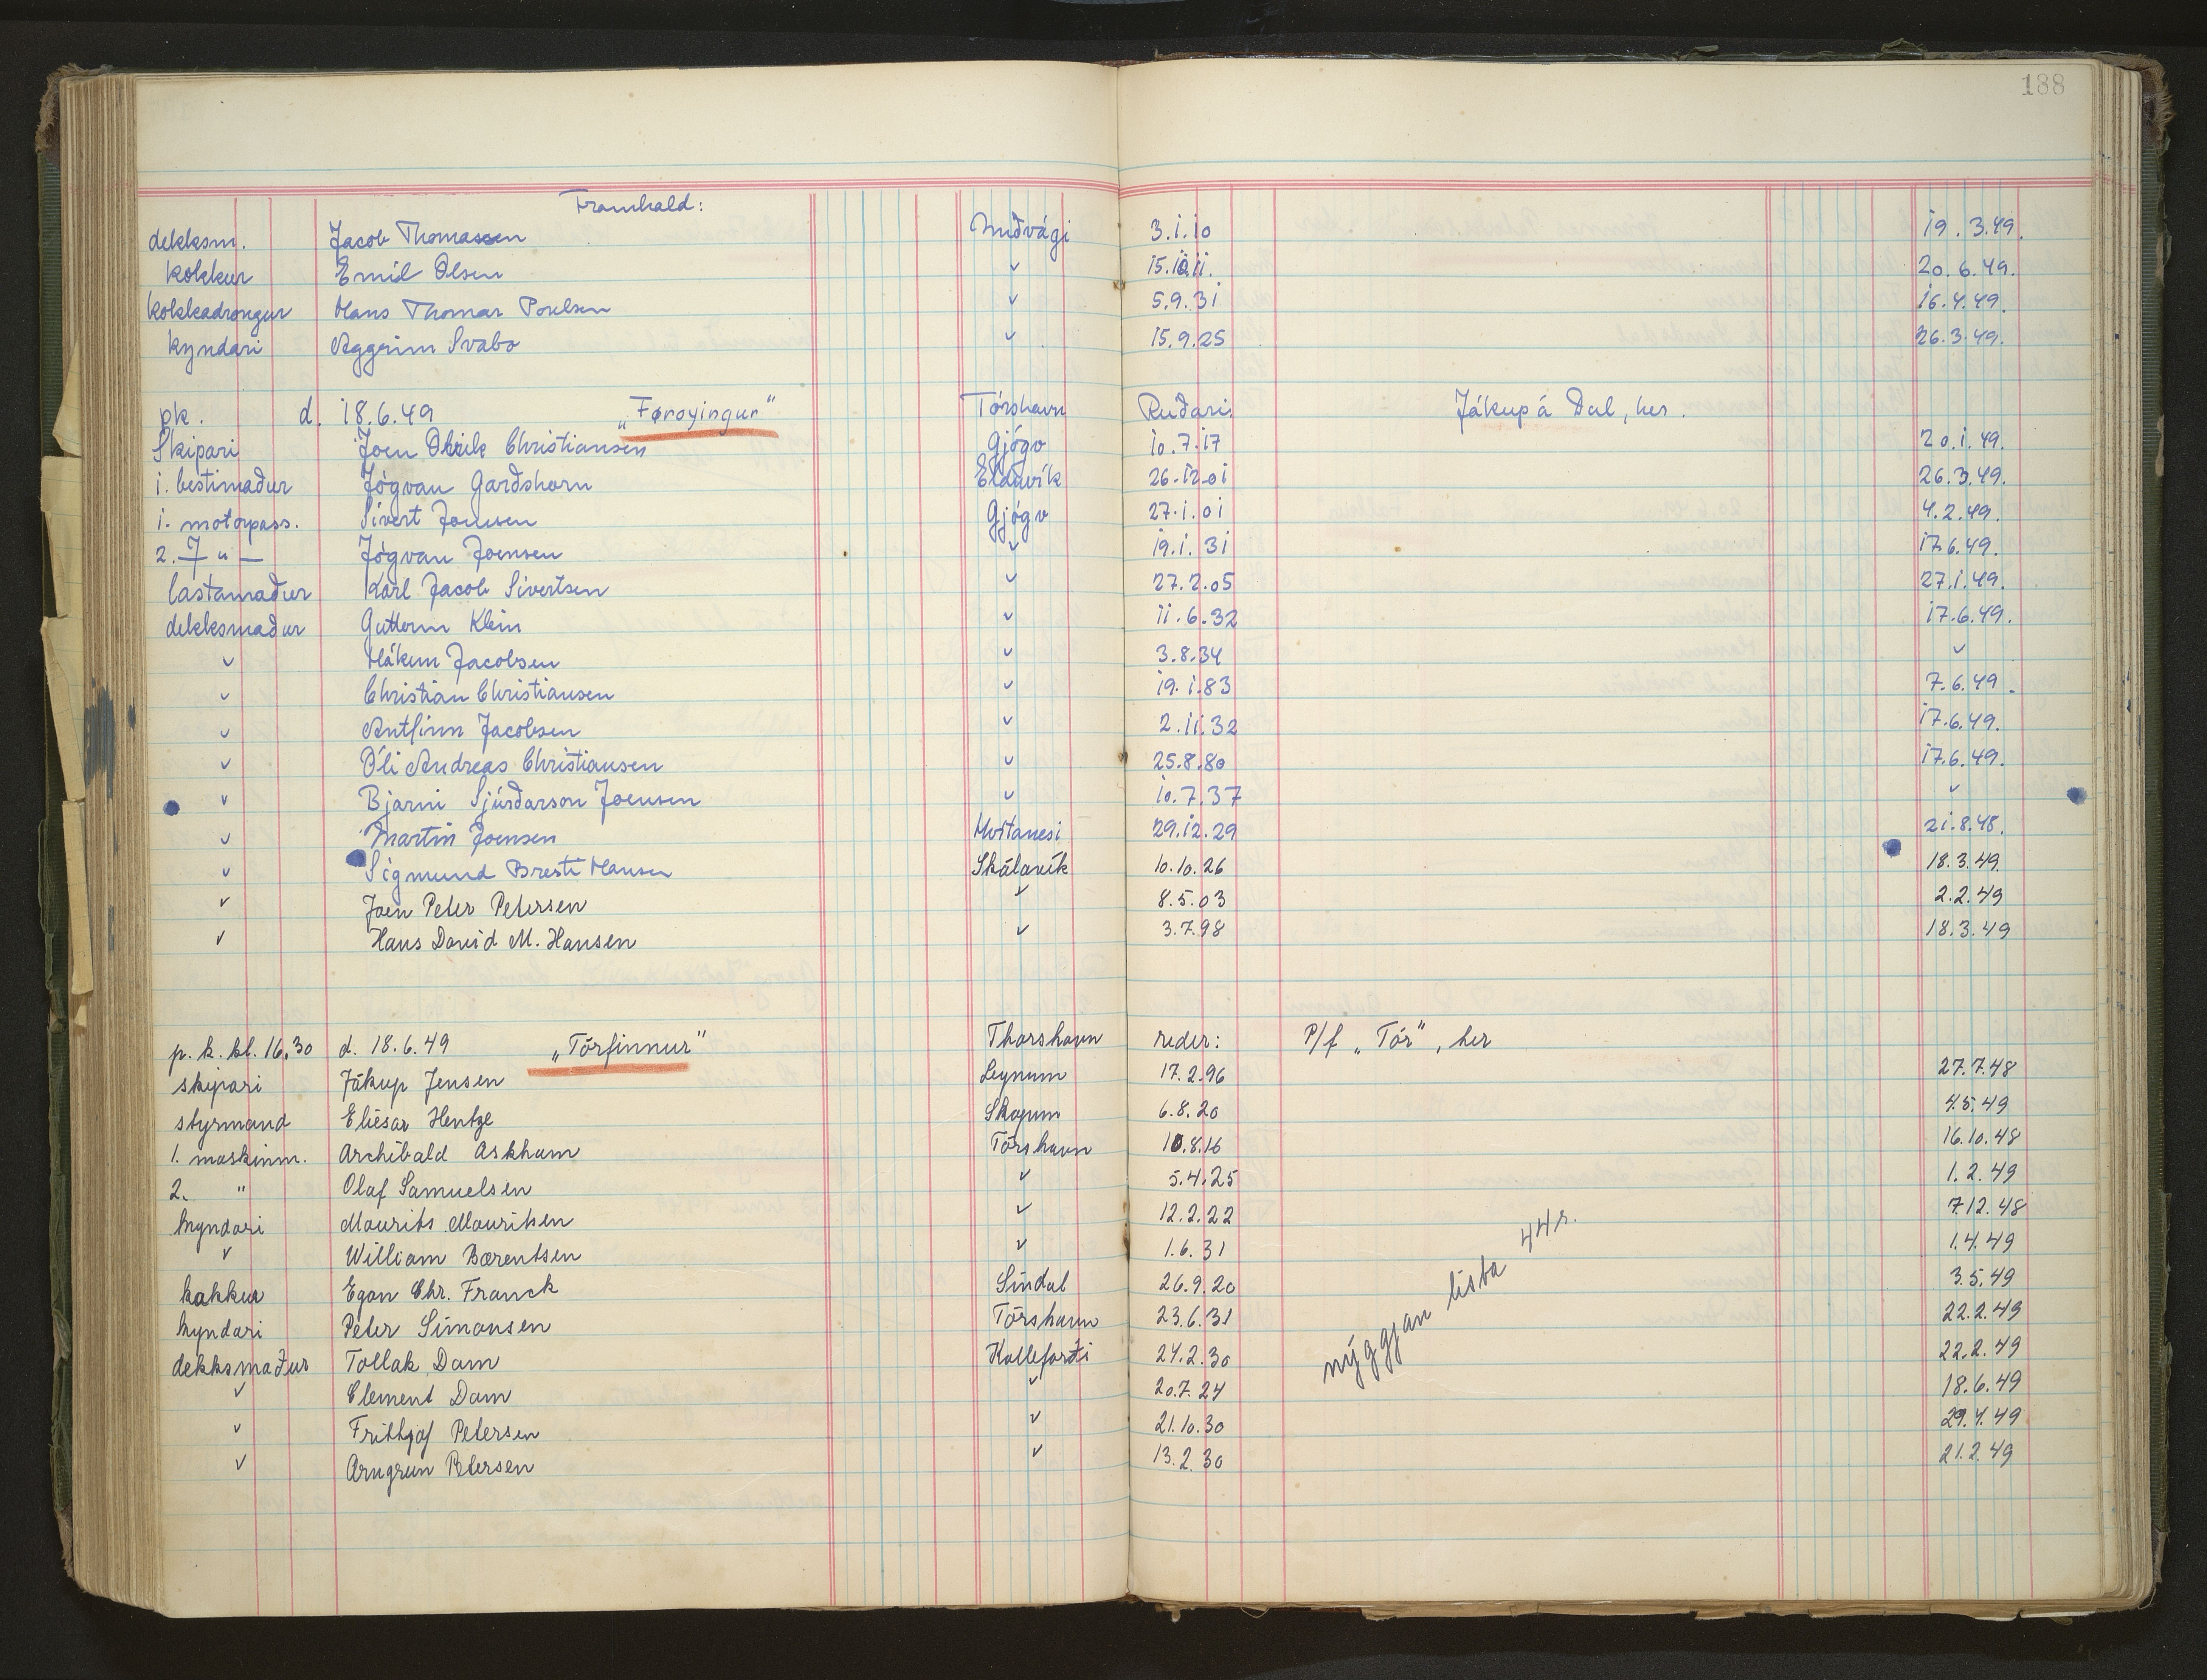 188
Framhald:
dekksm. Jacob Thomassen Miðvági 3.1.10 19.3.49.
kokkur Emil Olsen ✓ 15.10.11. 20.6.49.
kokkadrongur Hans Thomar Poulsen ✓ 5.9.31 16.4.49.
kyndari Aggrim Svabo ✓ 15.9.25 26.3.49.
pk. d. 18.6.49 „Føroyingur“ Tórshavn Reiðari: Jákup á Dul, her.
Skipari Joen Chriscle Christiansen Gjógv 10.7.17 20.1.49.
1. bestimaður Jógvan Garðshorn Elduvík 26.12.01 26.3.49.
1. motorpass. Sivert Joensen Gjógv 27.1.01 4.2.49.
2. — „ — Jógvan Joensen ✓ 19.1.31 17.6.49.
lastamaður Karl Jacob Sivertsen ✓ 27.2.05 27.1.49.
dekksmaður Guttorm Klein ✓ 11.6.32 17.6.49.
✓ Hákun Jacobsen ✓ 3.8.34 ✓
✓ Christian Christiansen ✓ 19.1.83 7.6.49.
✓ Antfinn Jacobsen ✓ 2.11.32 17.6.49.
✓ Óli Andreas Christiansen ✓ 25.8.80 17.6.49.
✓ Bjarni Sjúrðarson Joensen ✓ 10.7.37 ✓
✓ Martin Joensen Hvítanesi 29.12.29 21.8.48.
✓ Sigmund Bresti Hansen Skálavík 10.10.26 18.3.49.
✓ Joen Peter Petersen ✓ 8.5.03 2.2.49
✓ Hans David M. Hansen ✓ 3.7.98 18.3.49
p. k. kl. 16.30 d. 18.6.49 „Tórfinnur“ Thorshavn reder: P/f „Tór“, her
skipari Jákup Jensen Leynum 17.2.96 27.7.48
styrmand Eliésar Hentze Skopun 6.8.20 4.5.49
1. maskinm. Archibald Askham Tórshavn 10.8.16 16.10.48
2. " Olaf Samuelsen ✓ 5.4.25 1.2.49
kyndari Maurits Mouritsen ✓ 12.2.22 7.12.48
✓ William Bærentsen ✓ 1.6.31 1.4.49
kokkur Egon Chr. Franck Sindal 26.9.20 3.5.49
kyndari Peter Simonsen Tórshavn 23.6.31 22.2.49
dekksmaður Tollak Dam Kollefjørði 24.2.30 22.2.49
✓ Clement Dam ✓ 20.7.24 18.6.49
✓ Frithjof Petersen ✓ 21.10.30 29.4.49
✓ Arngrun Petersen ✓ 13.2.30 21.2.49
nýggjan lista 44r.